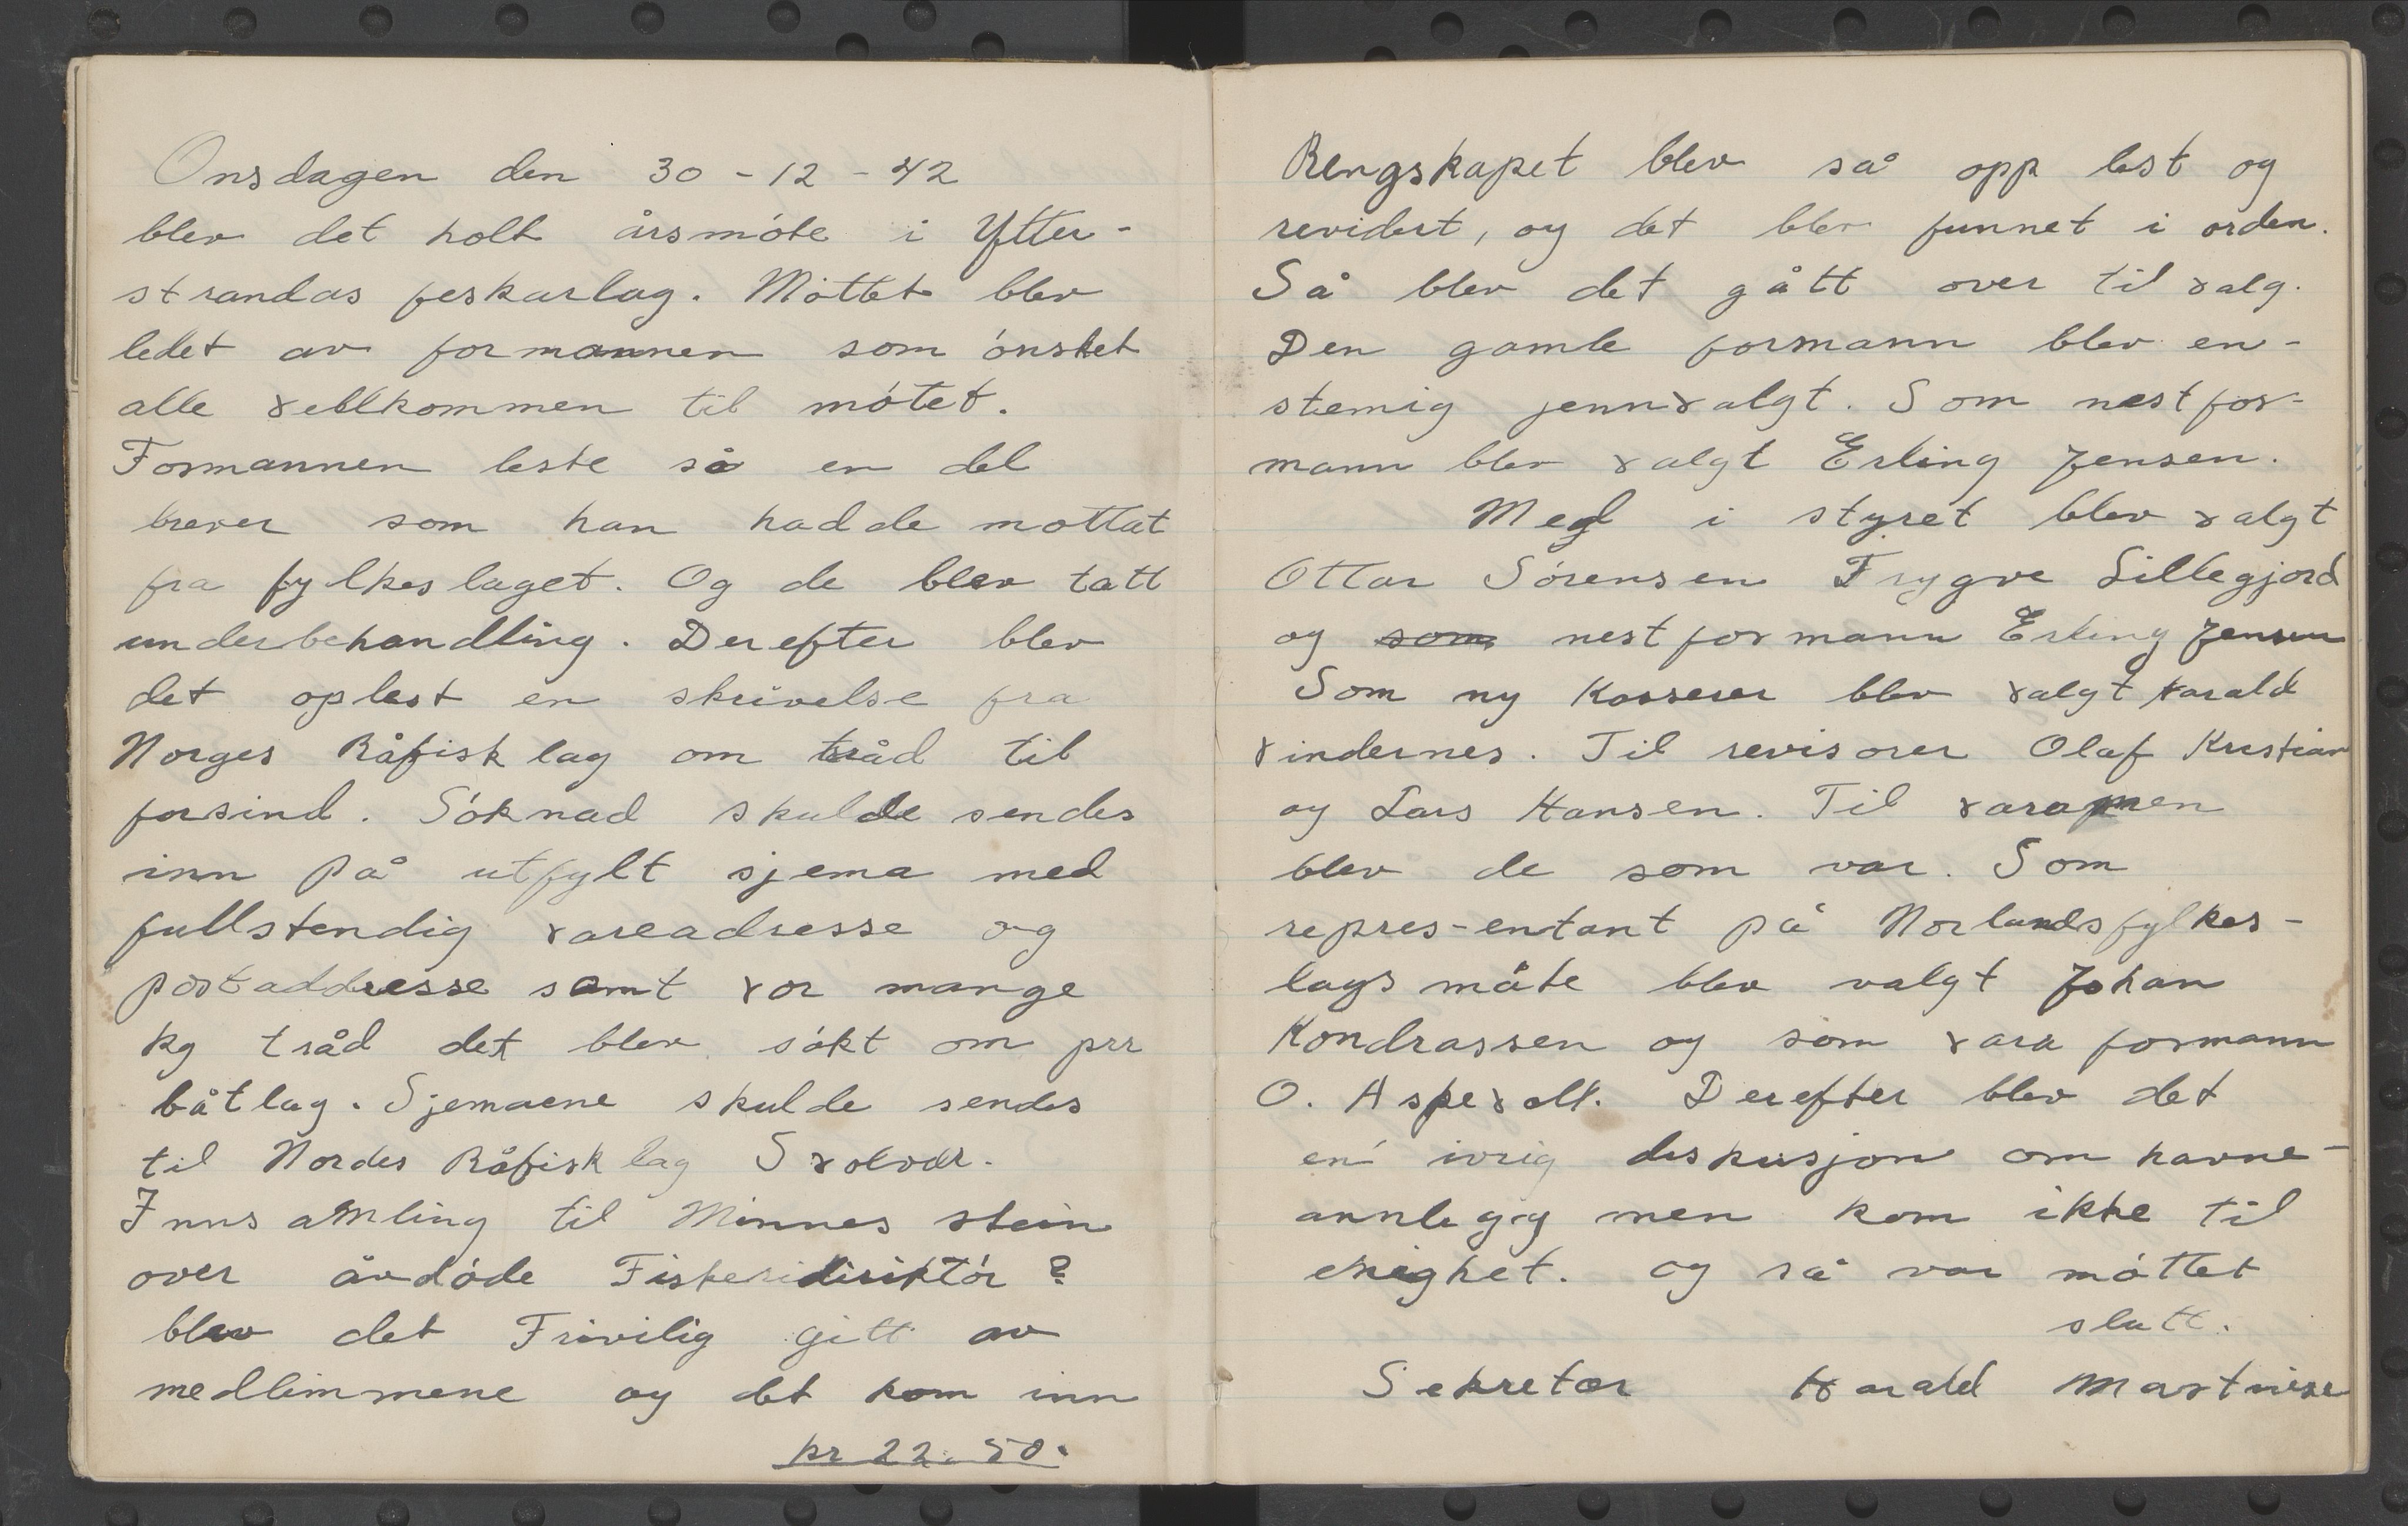 Onsdagen den 30-12-42
blev det holt årsmóte i Ytter-
strandas feskarlag. Móttet blev
ledet av formannen som ónsket
alle vellkommen til mótet.
Formannen leste så en del
brever som han hadde mottat
fra fylkeslaget. Og de blev tatt
underbehandling. Derefter blev
det oplest en skrivelse fra
Norges Råfisklag om tråd til
forsind. Sóknad skulde sendes
inn på utfylt sjema med
fullstendig vareadresse og
postaddresse samt vor mange
kg tråd det blev sókt om prr
båtlag. Sjemaene skulde sendes
til Nordes Råfisklag Svolvær.
Innsamling til Minnes stein
over avdóde Fiskeridiriktór ?
blev det Frivilig gitt av
medlimmene og det kom inn
kr 22.50.
Rengskapet blev så opp lest og
revidert, og det blev funnet i orden.
Så blev det gått over til valg.
Den gamle formann blev en-
stemig jennvalgt. Som nestfor-
mann blev valgt Erling Jensen.
Med i styret blev valgt
Ottar Sórensen Trygve Lillegjord
og som nestformann Erling Jensen
Som ny Kasserer blev valgt Harald
Vindernes. Til revisorer Olaf Kristian
og Lars Hansen. Til varamen
blev de som var. Som
repres-entant på Norlandsfylkes-
lags móte blev valgt Johan
Kondrassen og som vara formann
O. Aspevoll. Derefter blev det
en ivrig diskusjon om havne-
annlegg men kom ikke til
enighet. og så var móttet
slutt.
Sekretær Harald Martnise